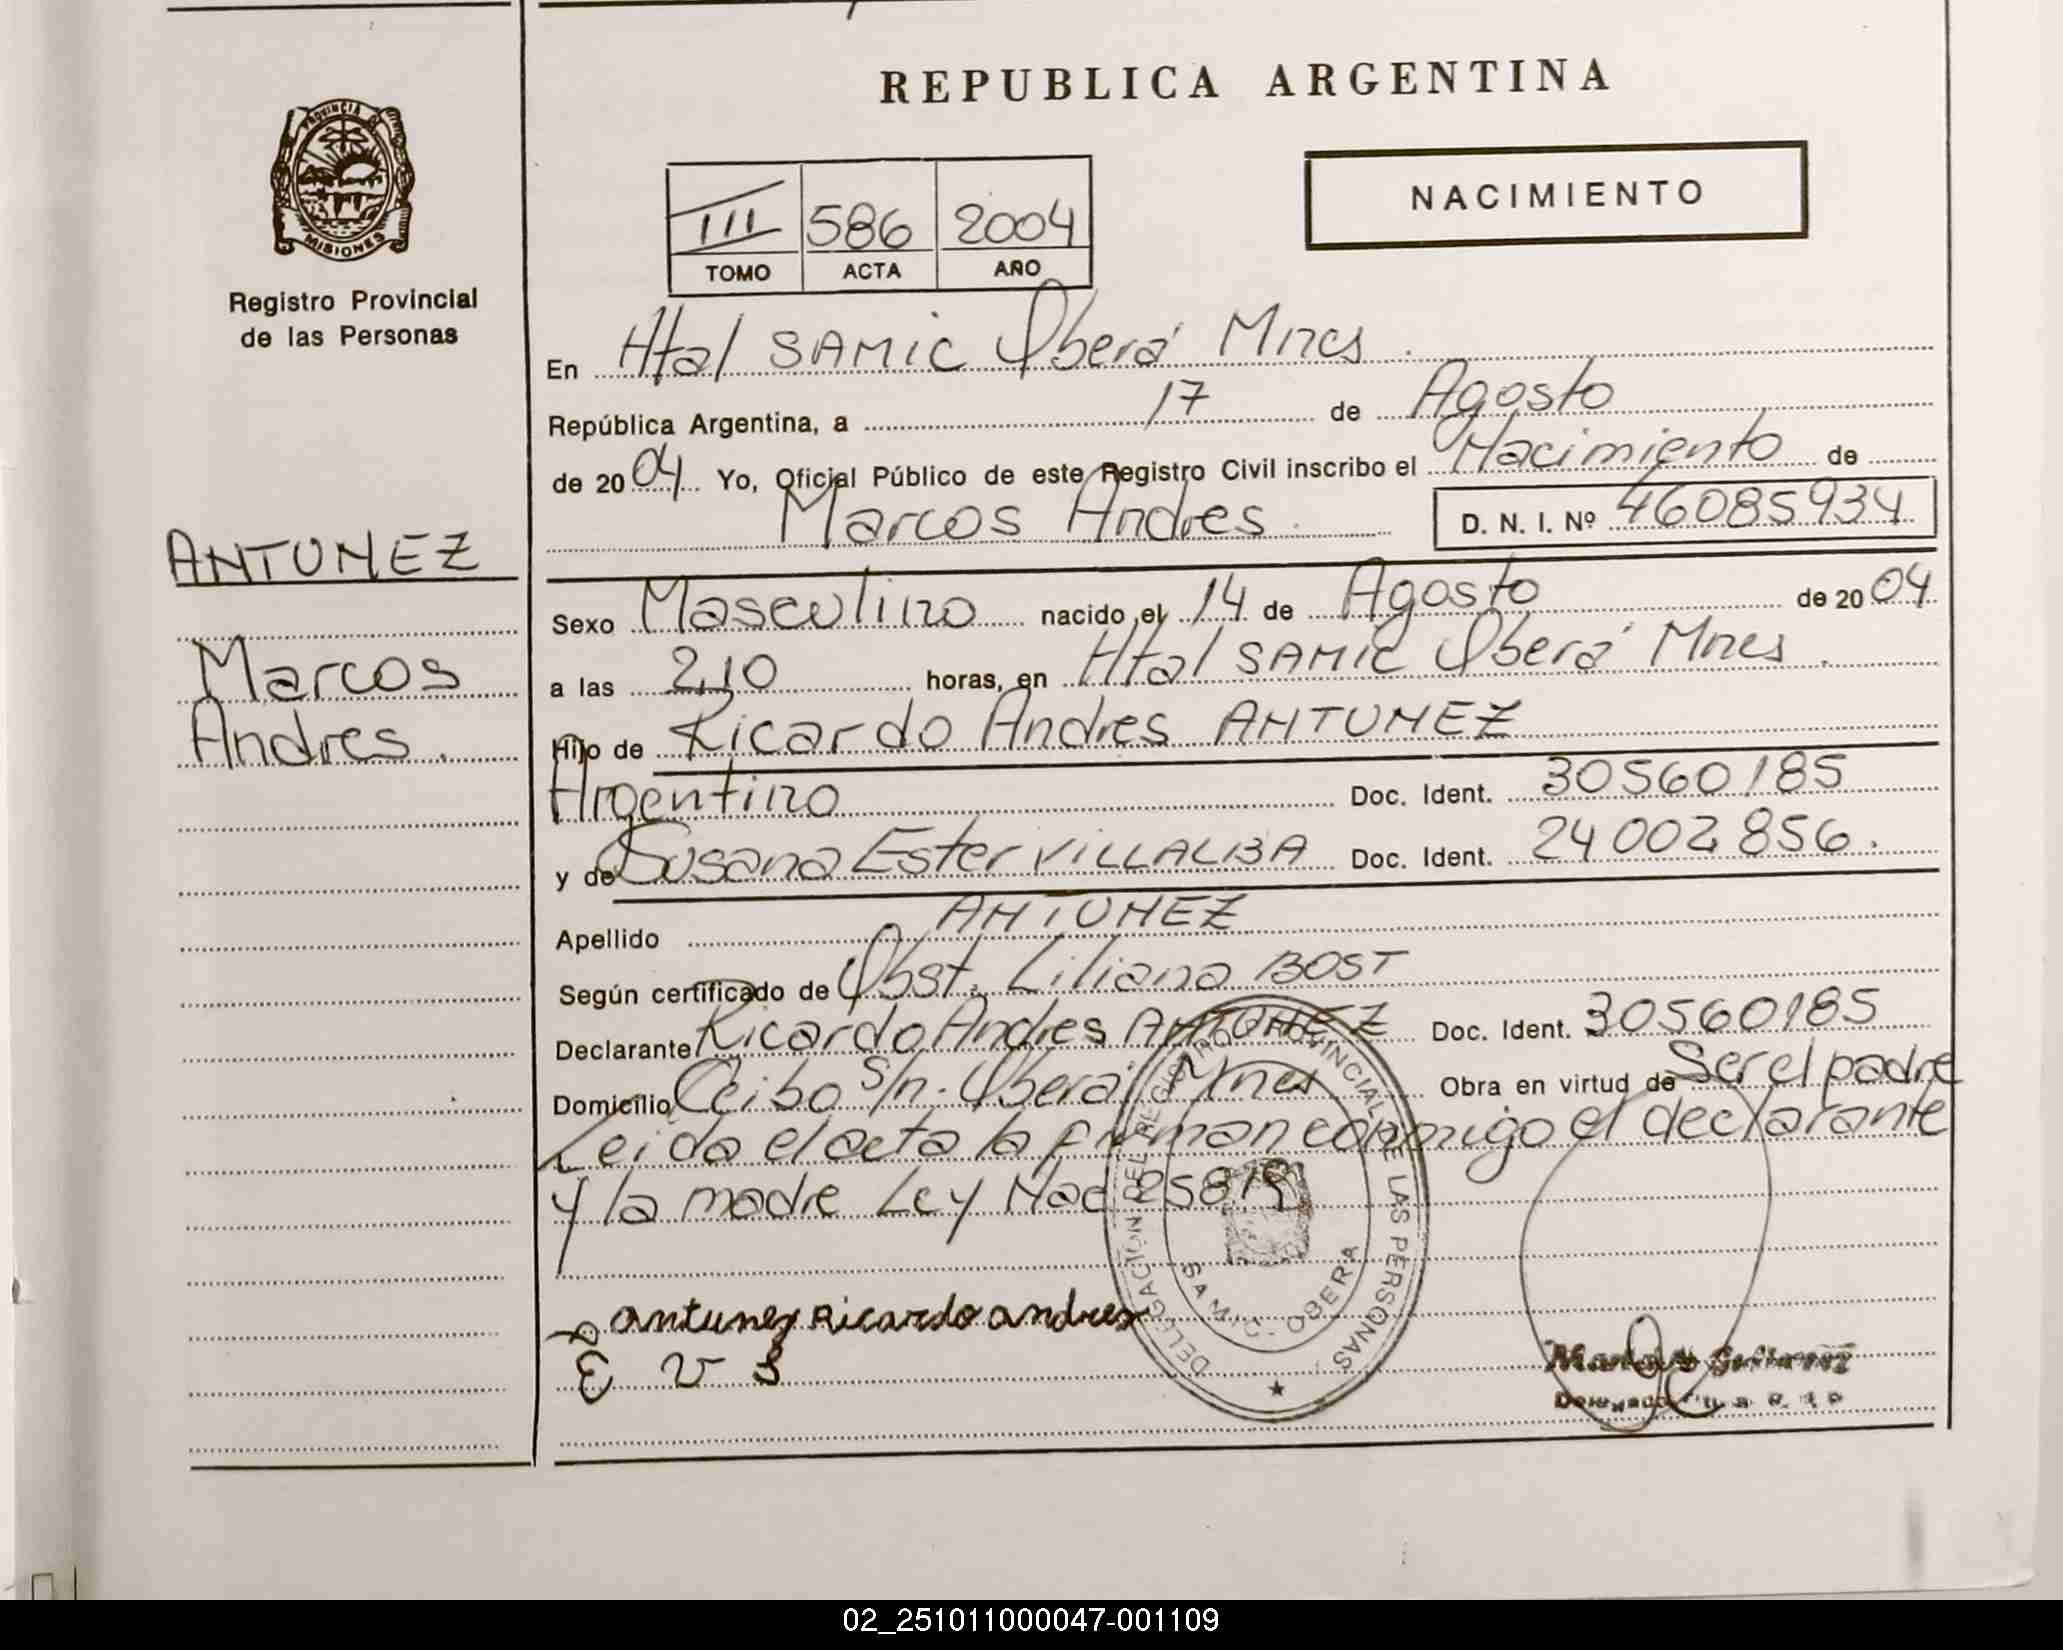 REPUBLICA ARGENTINA
PROVINCIA DE
MISIONES
Registro Provincial
de las Personas
NACIMIENTO
III 586 2004
TOMO ACTA AÑO
En Htal SAMIC Oberá Mnes.
República Argentina, a 17 de Agosto
de 2004 Yo, Oficial Público de este Registro Civil inscribo el Nacimiento de
Marcos Andres. D. N. I. Nº 46085934
ANTUNEZ
Marcos
Andres.
Sexo Masculino nacido el 14 de Agosto de 2004
a las 2,10 horas, en Htal SAMIC Oberá Mnes.
Hijo de Ricardo Andres ANTUNEZ
Argentino Doc. Ident. 30560185
y de Susana Ester VILLALBA Doc. Ident. 24002856.
Apellido ANTUNEZ
Según certificado de Obst. Liliana BOST
Declarante Ricardo Andres ANTUNEZ Doc. Ident. 30560185
Domicilio Ceibo s/n. Oberá Mnes Obra en virtud de Ser el padre
Leída el acta la firman conmigo el declarante
y la madre Ley Nac 25819
DELEGACIÓN DEL REGISTRO PROVINCIAL DE LAS PERSONAS
SAMIC - OBERA
antunez Ricardo andres
E V S
02_251011000047-001109